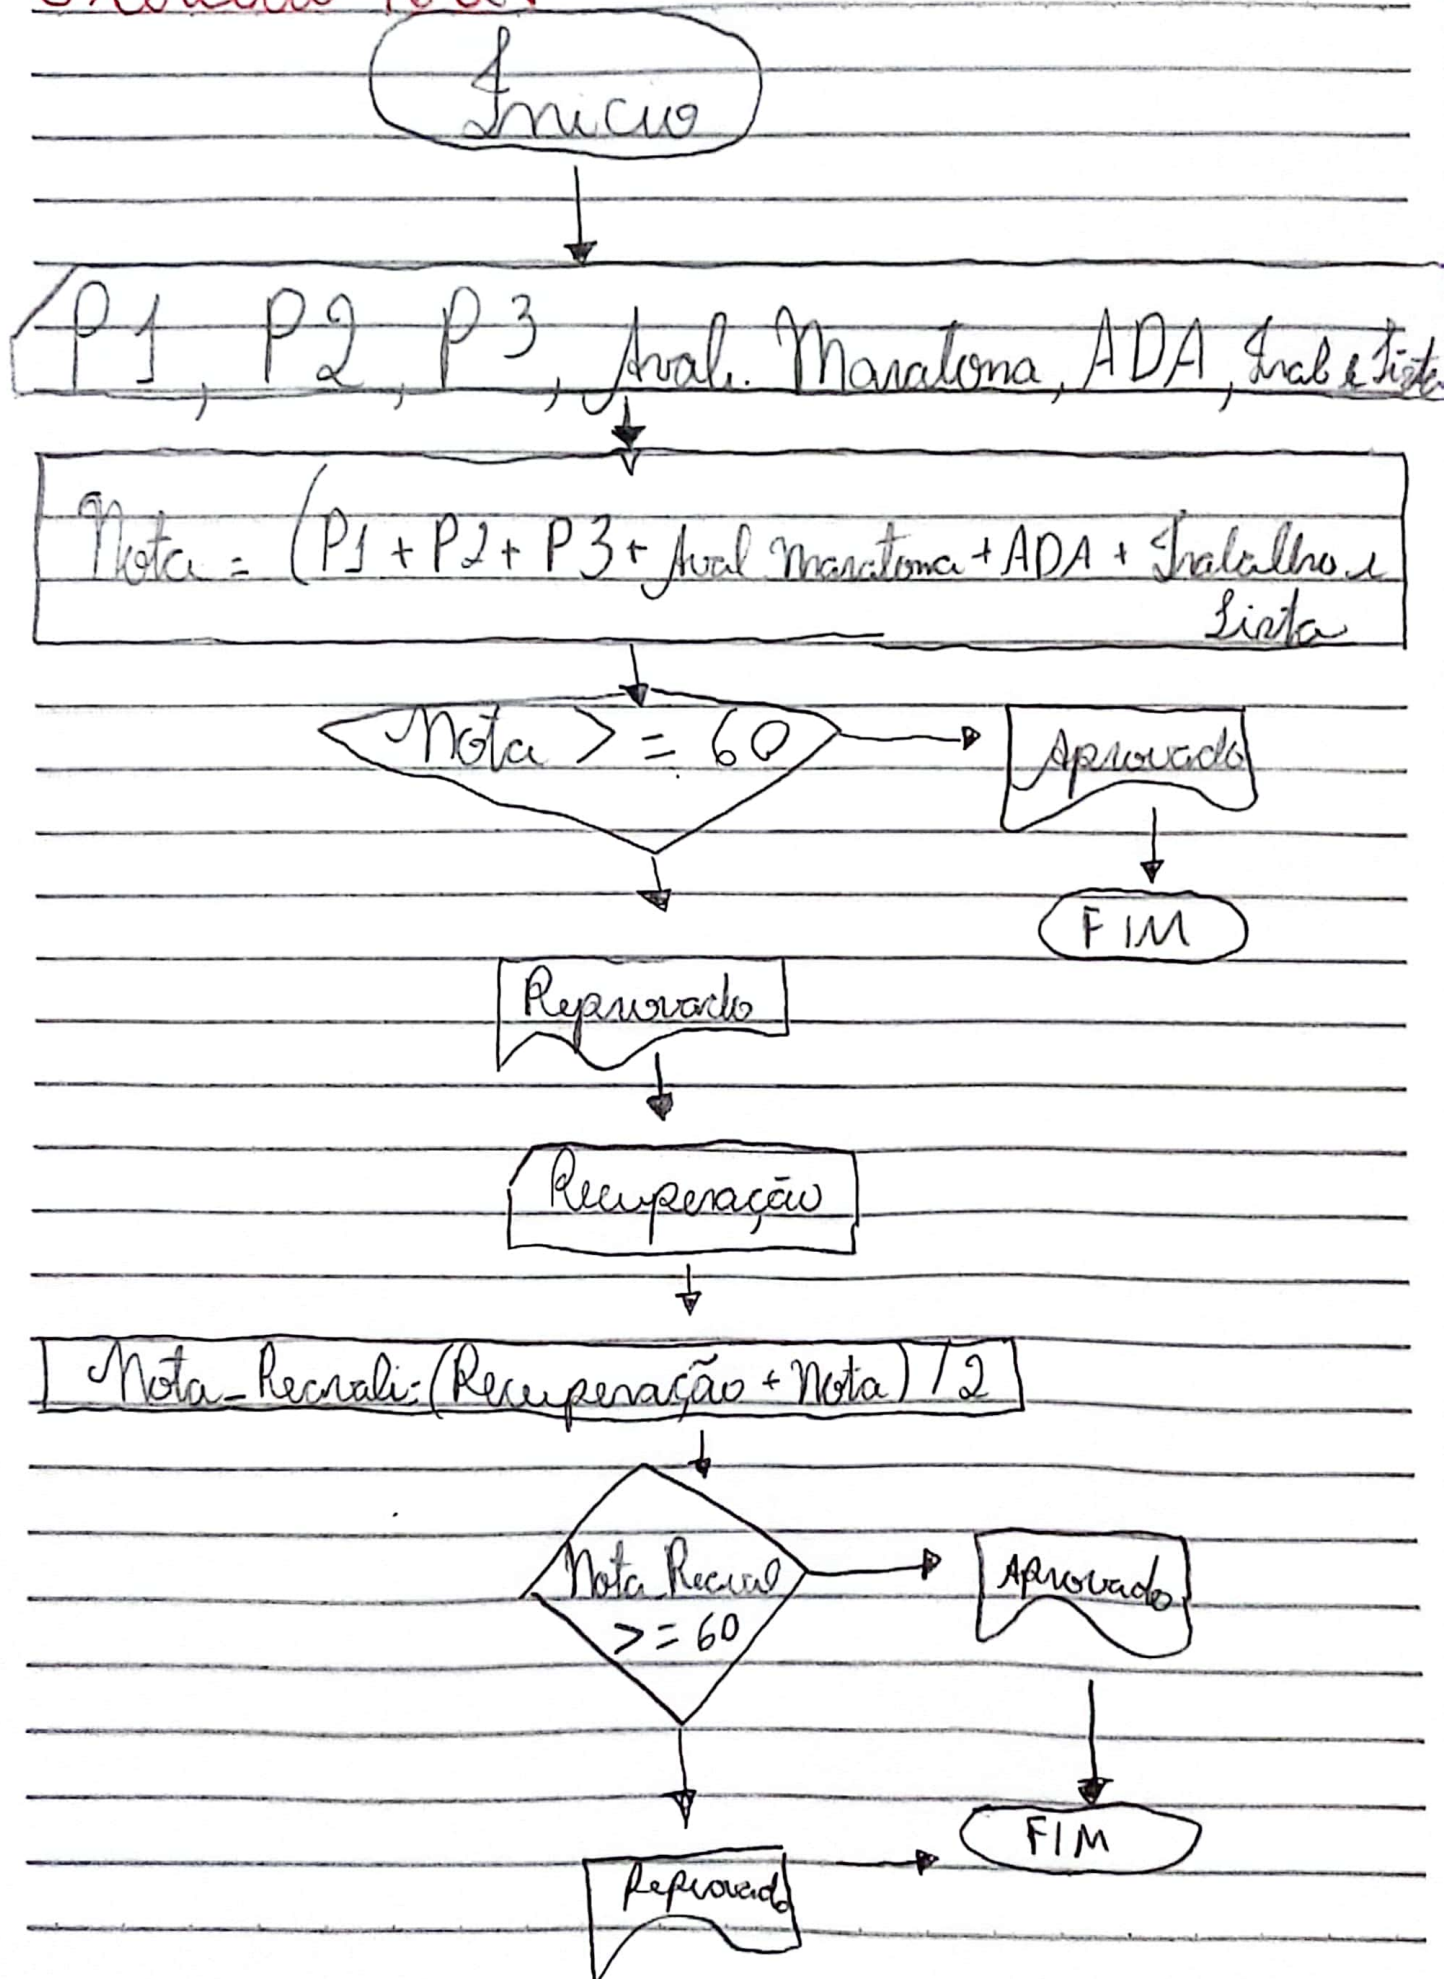 Inicio
P1, P2, P3, Aval. Maratona, ADA, Trab e Lista
Nota = (P1 + P2 + P3 + Aval Maratona + ADA + Trabalho e
Lista
Nota >= 60
Aprovado
FIM
Reprovado
Recuperação
Nota_Recvali=(Recuperação + Nota) / 2
Nota_Recval
>= 60
Aprovado
FIM
Reprovado